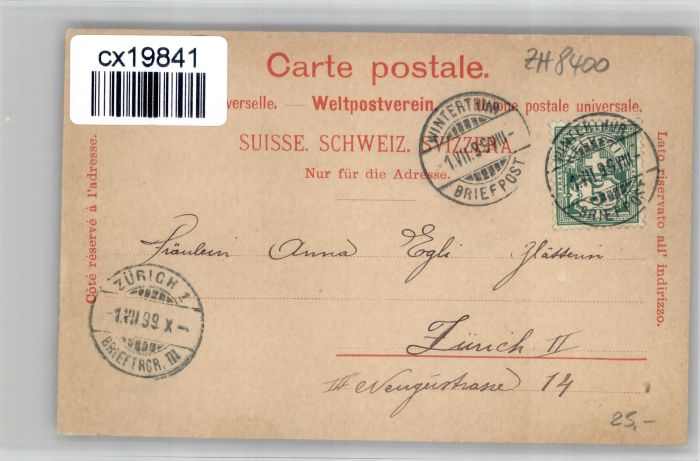 cx19841
ZH 8400
Carte postale.
verselle. — Weltpostverein. Unione postale universale.
SUISSE. SCHWEIZ. SVIZZERA.
Nur für die Adresse.
Côté réservé à l'adresse.
Lato riservato all' indirizzo.
WINTERTHUR
-1.VII.99.VIII-
BRIEFPOST
WINTERTHUR
Fräulein Anna Egli Glätterin
ZÜRICH 1
-1.VII.99.X-
BRIEFTRGR. III
Zürich II
14
25.-